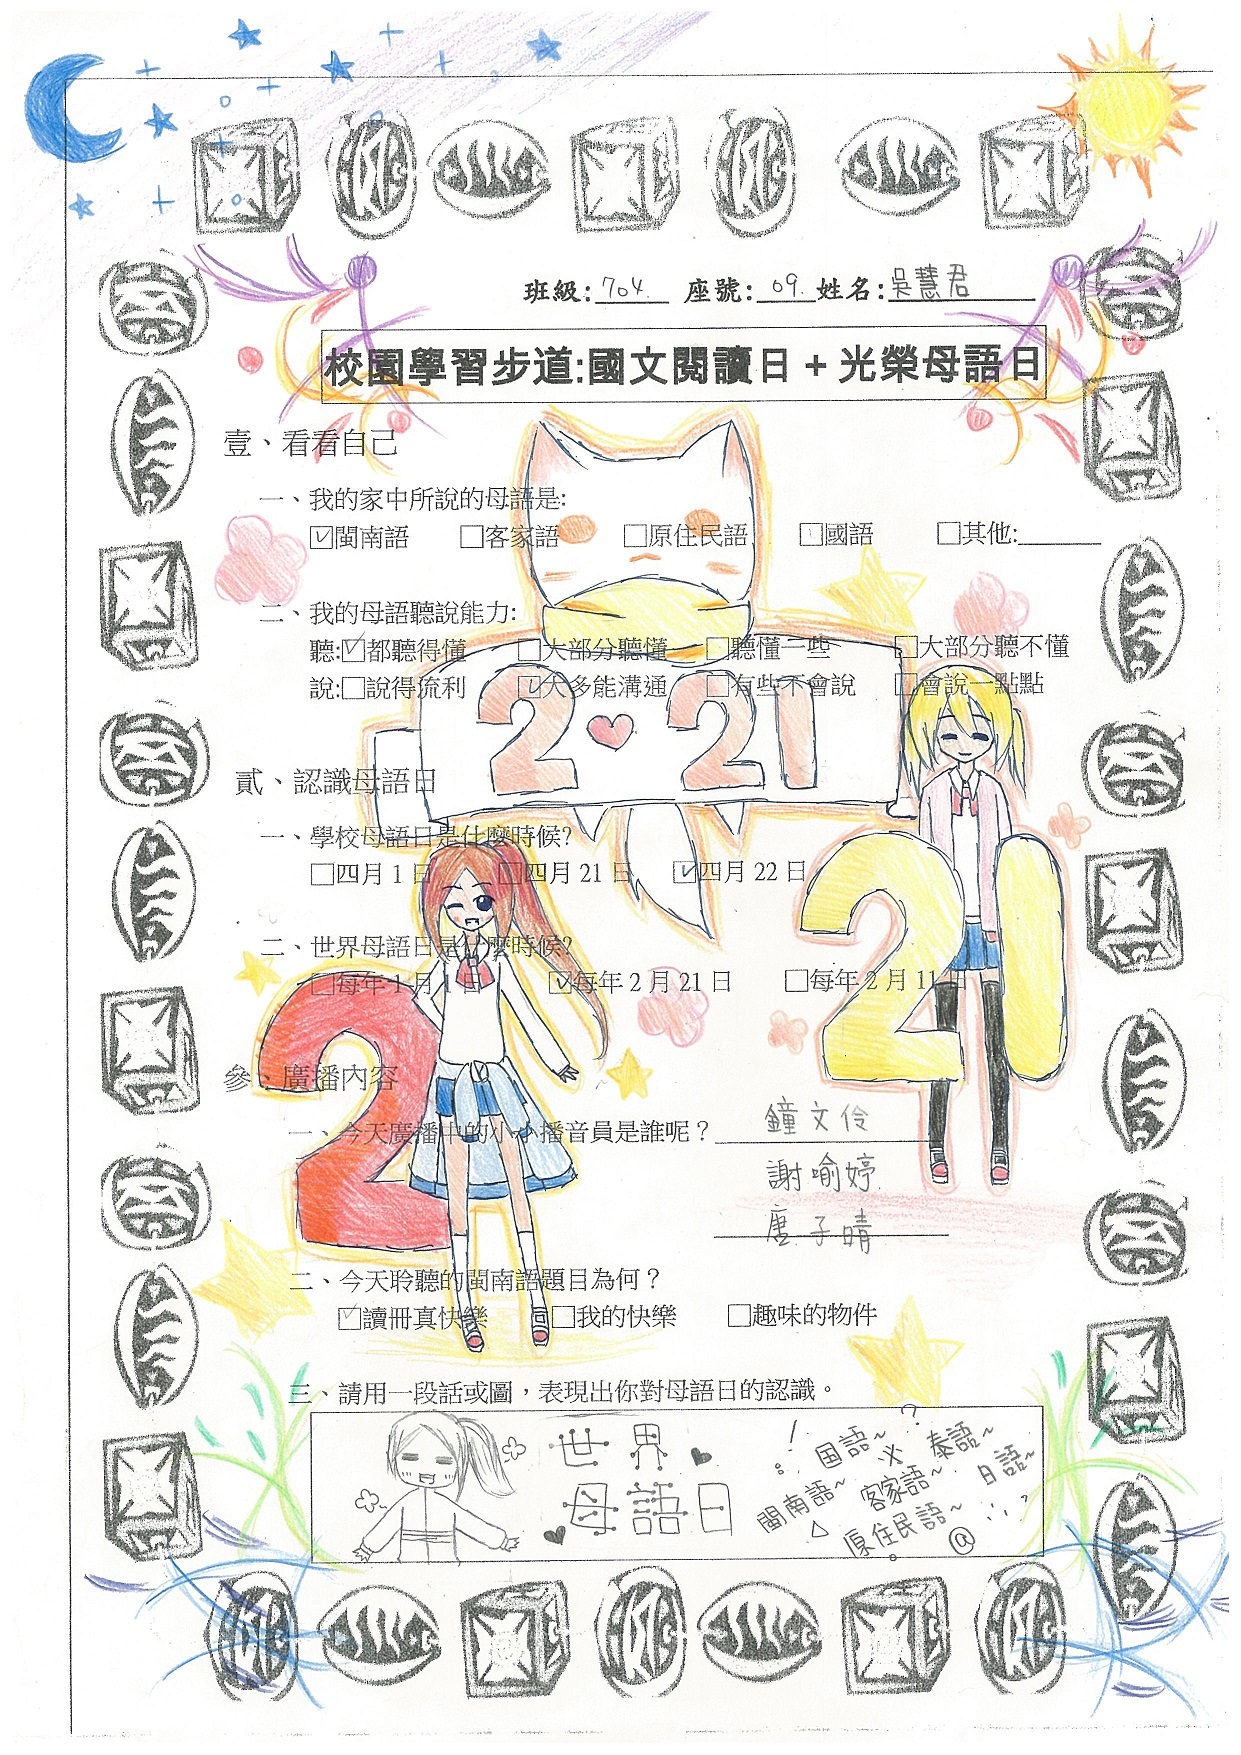 班級:704 座號:09 姓名:吳慧君
校園學習步道:國文閱讀日+光榮母語日
壹、看看自己
一、我的家中所說的母語是:
☑閩南語 □客家語 □原住民語 □國語 □其他:
二、我的母語聽說能力:
聽:☑都聽得懂 □大部分聽懂 □聽懂一些 □大部分聽不懂
說:□說得流利 ☑大多能溝通 □有些不會說 □會說一點點
2 21
貳、認識母語日
一、學校母語日是什麼時候?
□四月1日 □四月21日 ☑四月22日
二、世界母語日是什麼時候?
□每年1月1日 ☑每年2月21日 □每年2月11日
2 20
參、廣播內容
一、今天廣播中的小小播音員是誰呢?鐘文伶
謝喻婷
唐子晴
二、今天聆聽的閩南語題目為何?
☑讀冊真快樂 □我的快樂 □趣味的物件
三、請用一段話或圖,表現出你對母語日的認識。
世界
母語日
! 国語~ ? 泰語~
閩南語~ 客家語~ 日語~
原住民語~ @